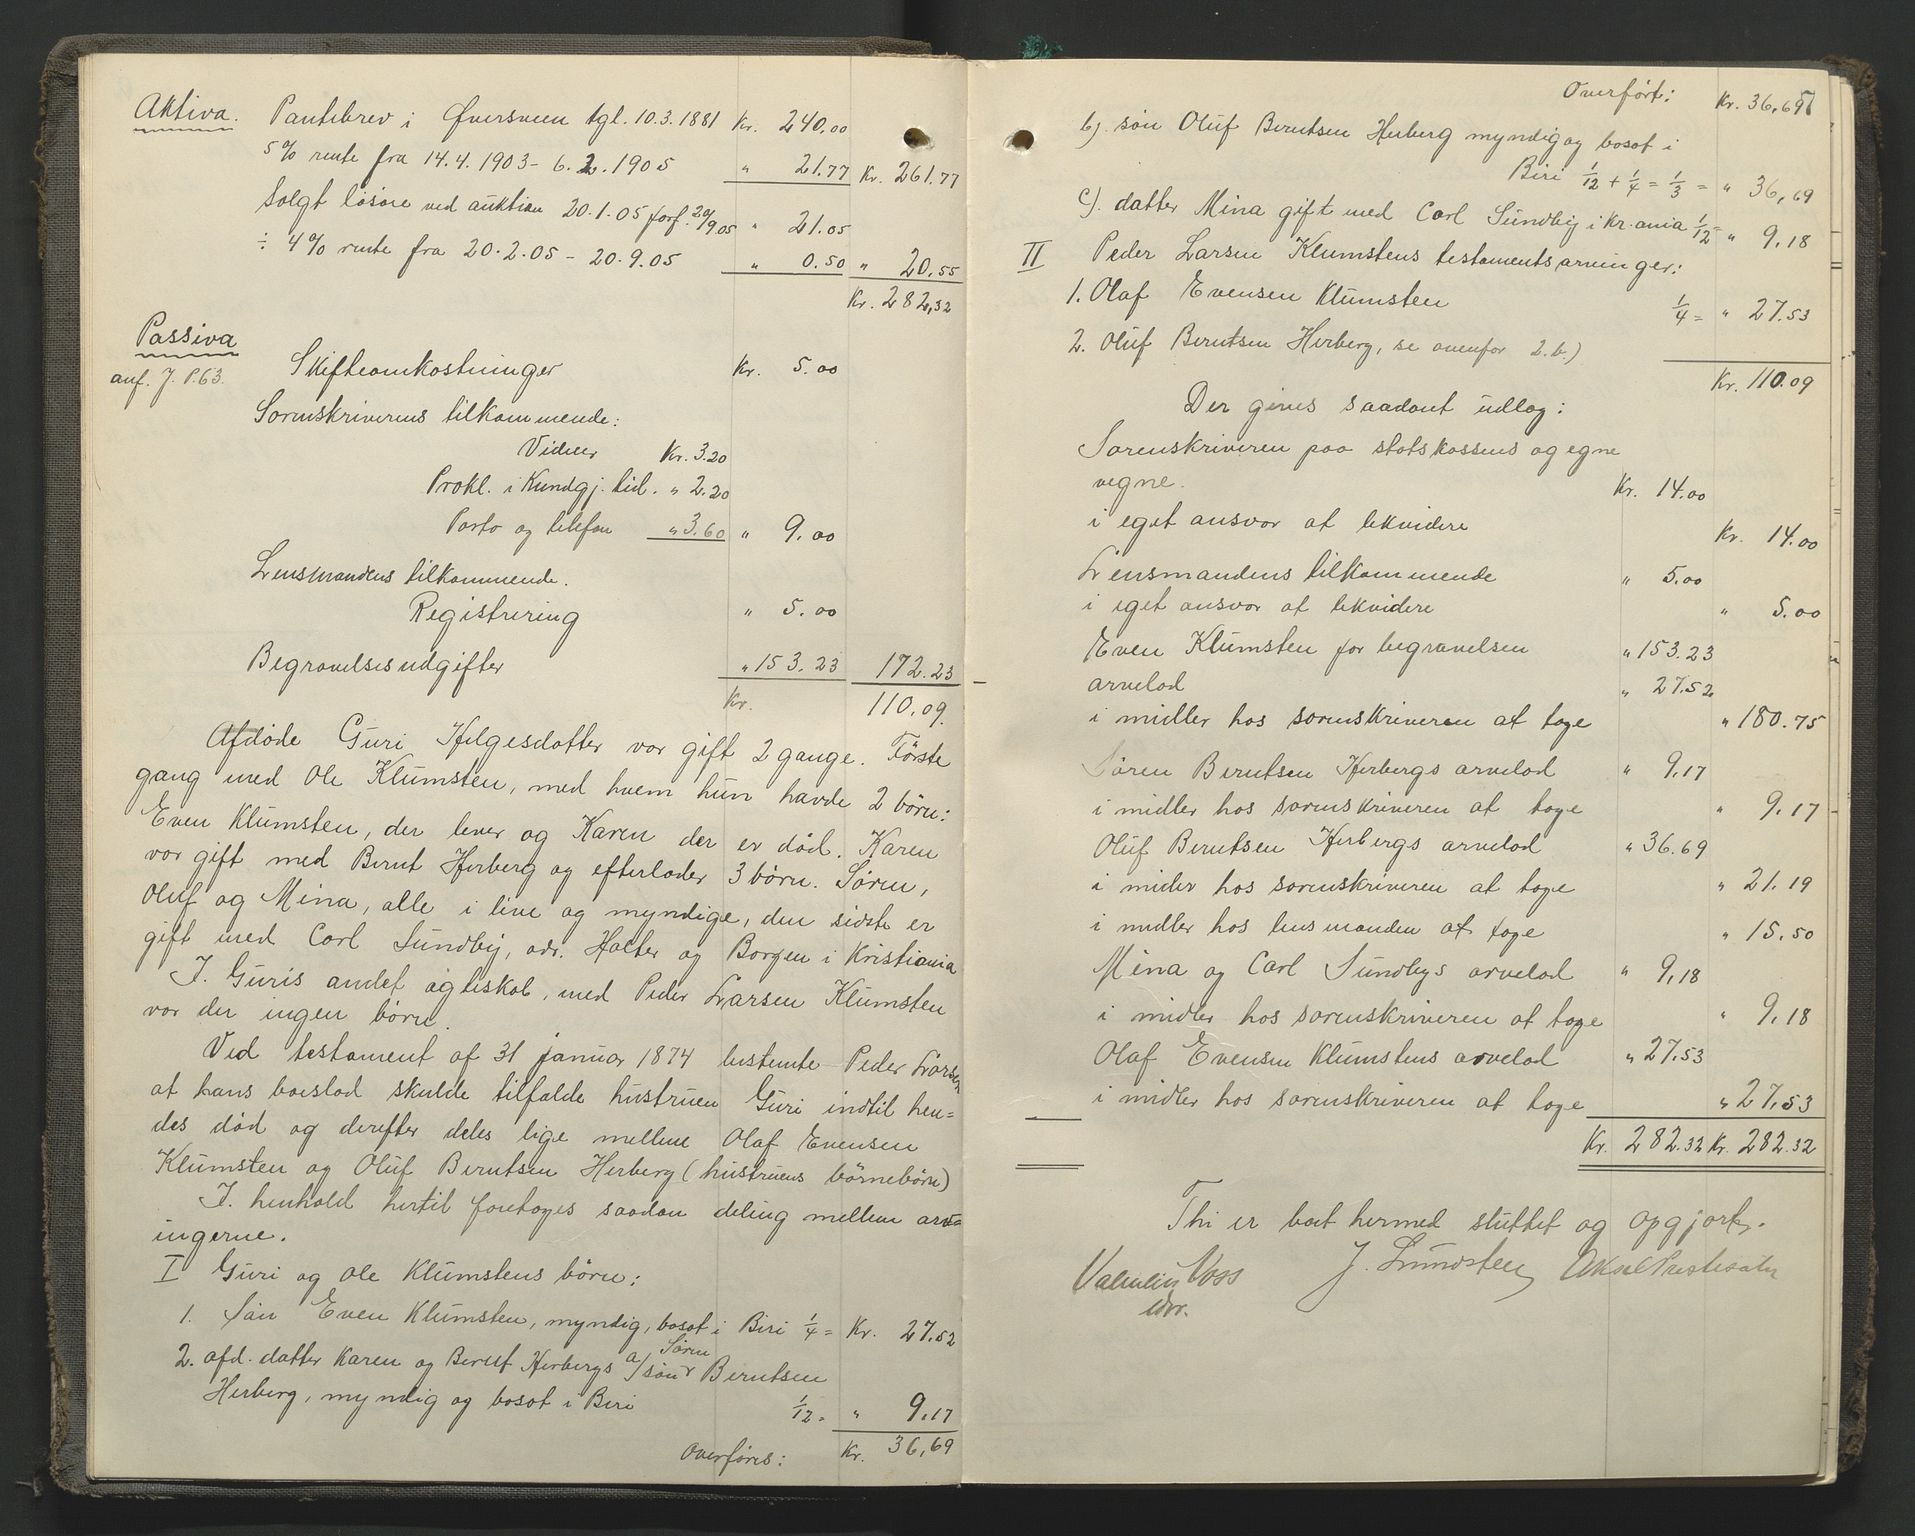 Aktiva. Pantebrev i Øversveen tgl. 10.3.1881 Kr. 240.00
5% rente fra 14.4.1903 - 6.2.1905 " 21.77 Kr. 261.77
Solgt løsøre ved auktion 20.1.05 forf. 20/9 05 " 21.05
÷ 4% rente fra 20.2.05 - 20.9.05 " 0.50 " 20.55
Kr. 282,32
Passiva
anf. J. P. 63.
Skifteomkostninger Kr. 5.00
Sorenskriverens tilkommende:
Videer Kr. 3.20
Prokl. i Kundgj. tid. " 2.20
Porto og telefon " 3.60 " 9.00
Lensmandens tilkommende.
Registrering " 5.00
Begravelsesudgifter " 153.23 172.23
Kr. 110.09.
Afdøde Guri Helgesdatter var gift 2 gange. Første
gang med Ole Klumsten, med hvem hun havde 2 børn:
Even Klumsten, der lever og Karen der er død. Karen
var gift med Bernt Herberg og efterlader 3 børn. Søren,
Oluf og Mina, alle i live og myndige, den sidste er
gift med Carl Sundby, adr. Halter og Borgen i Kristiania
I. Guris andet ægteskab, med Peder Larsen Klumsten
var der ingen børn.
Ved testament af 31 januar 1874 bestemte Peder Larsen
at hans boeslod skulde tilfalde hustruen Guri indtil hen=
des død og derefter deles lige mellem Olaf Evensen
Klumsten og Oluf Berntsen Herberg (hustruens børnebørn)
I. henhold hertil foretages saadan deling mellem arv-
ingerne.
I Guri og Ole Klumstens børn:
1. Søn Even Klumsten, myndig, bosat i Biri 1/4 = Kr. 27.52
2. afd. datter Karen og Bernt Herbergs a/ søn Søren Berntsen
Herberg, myndig og bosat i Biri 1/12 = " 9.17
Overføres: Kr. 36,69
Overført: Kr. 36,69
b). søn Oluf Berntsen Herberg myndig og bosat i
Biri 1/12 + 1/4 = 1/3 = " 36,69
c). datter Mina gift med Carl Sundby i Kr.ania 1/12 = " 9.18
II Peder Larsen Klumstens testamentsarvinger:
1. Olaf Evensen Klumsten 1/4 = " 27.53
2. Oluf Berntsen Herberg, se ovenfor 2.b.)
Kr. 110.09
Der gives saadant udlæg:
Sorenskriveren paa statskassens og egne
vegne. Kr. 14.00
i eget ansvar at likvidere Kr. 14.00
Lensmandens tilkommende " 5.00
i eget ansvar at likvidere " 5.00
Even Klumsten for begravelsen " 153.23
arvelod " 27.52
i midler hos sorenskriveren at tage " 180.75
Søren Berntsen Herbergs arvelod " 9.17
i midler hos sorenskriveren at tage " 9.17
Oluf Berntsen Herbergs arvelod " 36.69
i midler hos sorenskriveren at tage " 21.19
i midler hos lensmanden at tage " 15.50
Mina og Carl Sundbys arvelod " 9,18
i midler hos sorenskriveren at tage " 9.18
Olaf Evensen Klumstens arvelod " 27.53
i midler hos sorenskriveren at tage " 27,53
Kr. 282.32 Kr. 282.32
Thi er boet hermed sluttet og opgjort.
Valentin Voss J. Lundsten Aksel Prestesæter
edv.